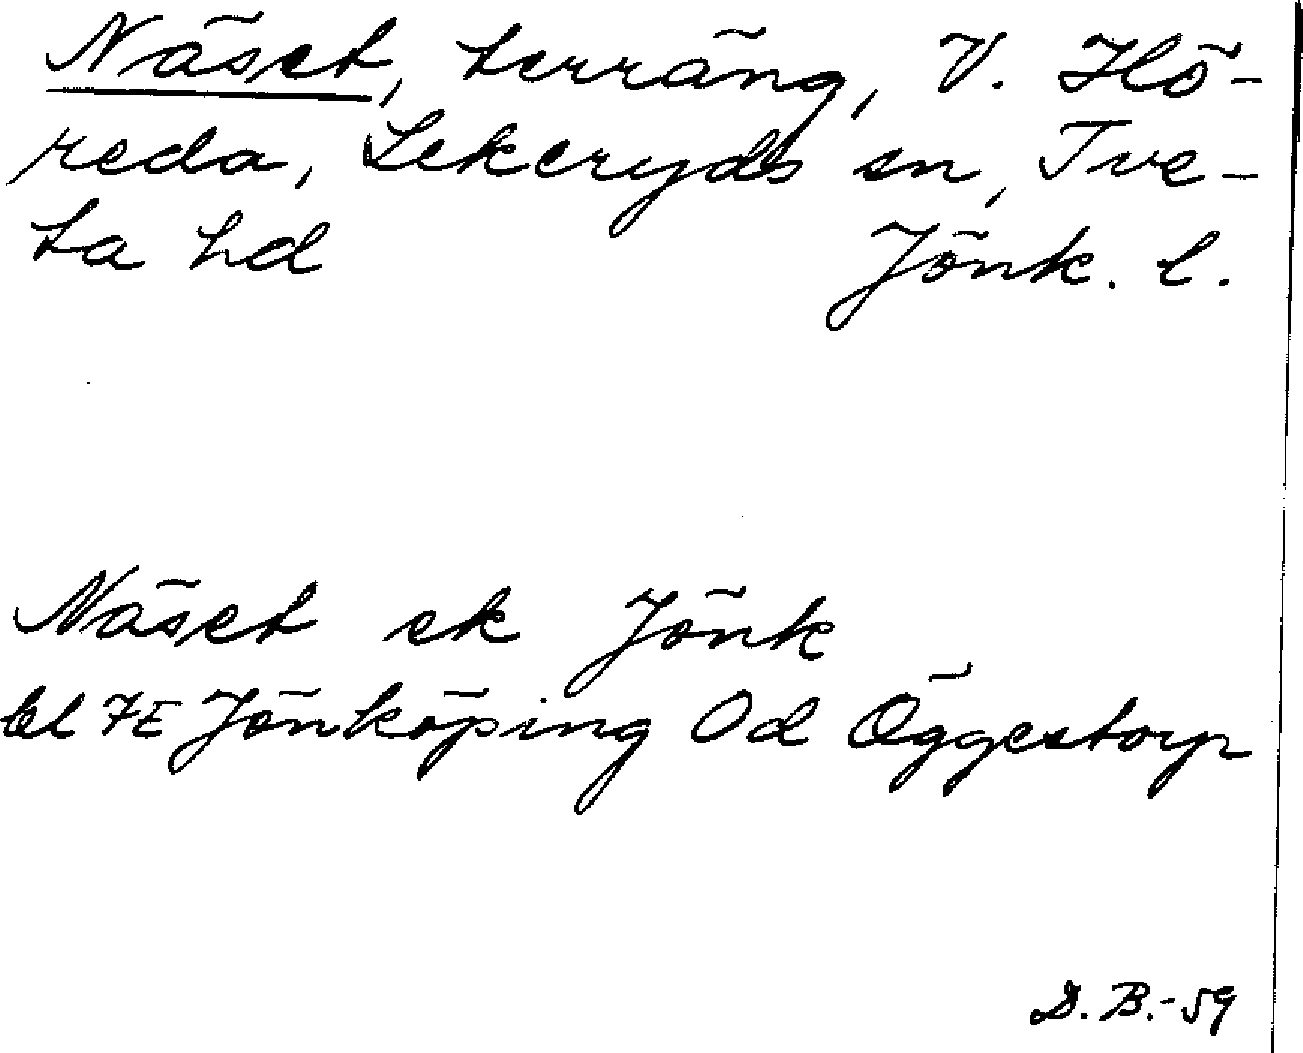 Näset, terräng, V. Hö-
reda, Lekeryds sn, Tve-
ta hd Jönk. l.
Näset ek Jönk
bl 7E Jönköping Od Öggestorp
D. B.-59